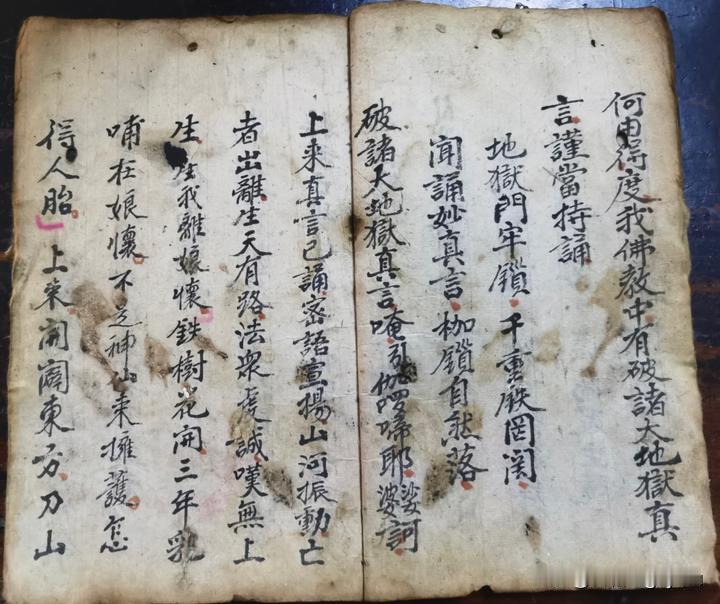 何由得度我佛教中有破諸大地獄真
言謹當持誦
地獄門牢鎖千重鉄罔関
聞誦妙真言枷鎖自然落
破諸大地獄真言唵引伽啰啼耶娑婆訶
上来真言已誦密語宣揚山河振動亡
者出離生天有路法衆虔誠嘆無上
生生我離娘懷鉄樹花開三年乳
哺在娘懷不是神仙来擁護怎
得人胎上来開闢東方刀山